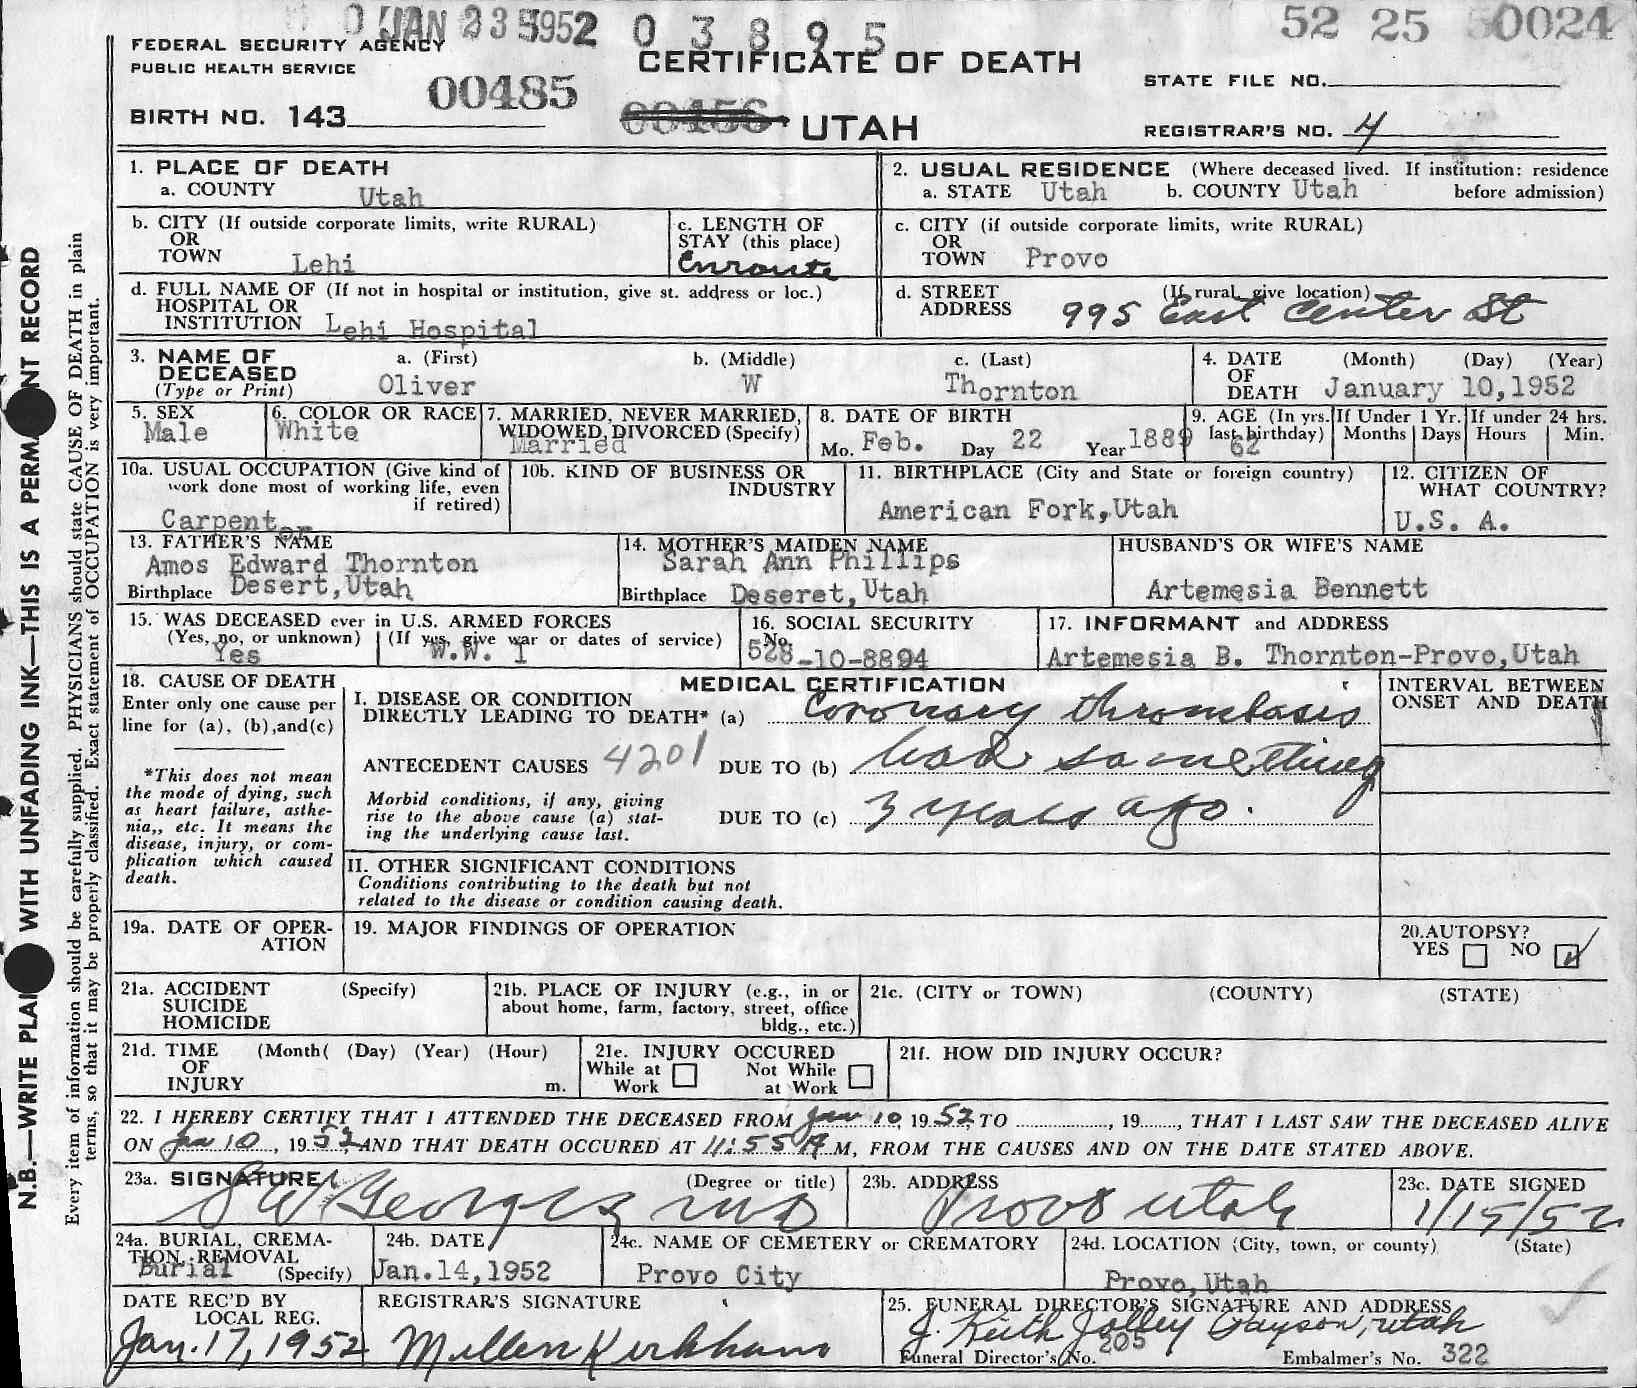 JAN 23 1952 0 3 8 9 5
52 25 50024
FEDERAL SECURITY AGENCY
PUBLIC HEALTH SERVICE
CERTIFICATE OF DEATH
STATE FILE NO.
BIRTH NO. 143
00485
00456 UTAH
REGISTRAR'S NO. 4
1. PLACE OF DEATH
a. COUNTY Utah
2. USUAL RESIDENCE (Where deceased lived. If institution: residence before admission)
a. STATE Utah b. COUNTY Utah
b. CITY (If outside corporate limits, write RURAL)
OR
TOWN Lehi
c. LENGTH OF
STAY (this place)
Enroute
c. CITY (if outside corporate limits, write RURAL)
OR
TOWN Provo
d. FULL NAME OF (If not in hospital or institution, give st. address or loc.)
HOSPITAL OR
INSTITUTION Lehi Hospital
d. STREET (If rural, give location)
ADDRESS 995 East Center St
3. NAME OF DECEASED
(Type or Print)
a. (First) b. (Middle) c. (Last)
Oliver W Thornton
4. DATE OF DEATH (Month) (Day) (Year)
January 10,1952
5. SEX
Male
6. COLOR OR RACE
White
7. MARRIED, NEVER MARRIED,
WIDOWED, DIVORCED (Specify)
Married
8. DATE OF BIRTH
Mo. Feb. Day 22 Year 1889
9. AGE (In yrs. last birthday)
62
If Under 1 Yr.
Months Days
If under 24 hrs.
Hours Min.
10a. USUAL OCCUPATION (Give kind of
work done most of working life, even
if retired)
Carpenter
10b. KIND OF BUSINESS OR
INDUSTRY
11. BIRTHPLACE (City and State or foreign country)
American Fork,Utah
12. CITIZEN OF
WHAT COUNTRY?
U.S. A.
13. FATHER'S NAME
Amos Edward Thornton
Birthplace Desert,Utah
14. MOTHER'S MAIDEN NAME
Sarah Ann Phillips
Birthplace Deseret,Utah
HUSBAND'S OR WIFE'S NAME
Artemesia Bennett
15. WAS DECEASED ever in U.S. ARMED FORCES
(Yes, no, or unknown) (If yes, give war or dates of service)
Yes W.W. I
16. SOCIAL SECURITY
No.
528-10-8894
17. INFORMANT and ADDRESS
Artemesia B. Thornton-Provo,Utah
18. CAUSE OF DEATH
Enter only one cause per
line for (a), (b),and(c)
*This does not mean
the mode of dying, such
as heart failure, asthe-
nia,, etc. It means the
disease, injury, or com-
plication which caused
death.
MEDICAL CERTIFICATION
I. DISEASE OR CONDITION
DIRECTLY LEADING TO DEATH* (a) Coronary thrombosis
INTERVAL BETWEEN
ONSET AND DEATH
ANTECEDENT CAUSES 4201 DUE TO (b) had something
Morbid conditions, if any, giving
rise to the above cause (a) stat-
ing the underlying cause last.
DUE TO (c) 3 years ago.
II. OTHER SIGNIFICANT CONDITIONS
Conditions contributing to the death but not
related to the disease or condition causing death.
19a. DATE OF OPER-
ATION
19. MAJOR FINDINGS OF OPERATION
20.AUTOPSY?
YES NO
21a. ACCIDENT (Specify)
SUICIDE
HOMICIDE
21b. PLACE OF INJURY (e.g., in or
about home, farm, factory, street, office
bldg., etc.)
21c. (CITY or TOWN) (COUNTY) (STATE)
21d. TIME (Month( (Day) (Year) (Hour)
OF
INJURY m.
21e. INJURY OCCURED
While at Work Not While at Work
21f. HOW DID INJURY OCCUR?
22. I HEREBY CERTIFY THAT I ATTENDED THE DECEASED FROM Jan 10, 1952, TO ............, 19......, THAT I LAST SAW THE DECEASED ALIVE
ON Jan 10, 1952, AND THAT DEATH OCCURED AT 11:55 A M, FROM THE CAUSES AND ON THE DATE STATED ABOVE.
23a. SIGNATURE (Degree or title)
S W Georges MD
23b. ADDRESS
Provo Utah
23c. DATE SIGNED
1/15/52
24a. BURIAL, CREMA-
TION, REMOVAL
Burial (Specify)
24b. DATE
Jan.14,1952
24c. NAME OF CEMETERY or CREMATORY
Provo City
24d. LOCATION (City, town, or county) (State)
Provo,Utah
DATE REC'D BY
LOCAL REG.
Jan. 17, 1952
REGISTRAR'S SIGNATURE
Millen Kirkham
25. FUNERAL DIRECTOR'S SIGNATURE AND ADDRESS
J. Keith Jolley Payson, Utah
Funeral Director's No. 205 Embalmer's No. 322
N.B.—WRITE PLAI WITH UNFADING INK—THIS IS A PERMA NT RECORD
Every item of information should be carefully supplied. PHYSICIANS should state CAUSE OF DEATH in plain
terms, so that it may be properly classified. Exact statement of OCCUPATION is very important.